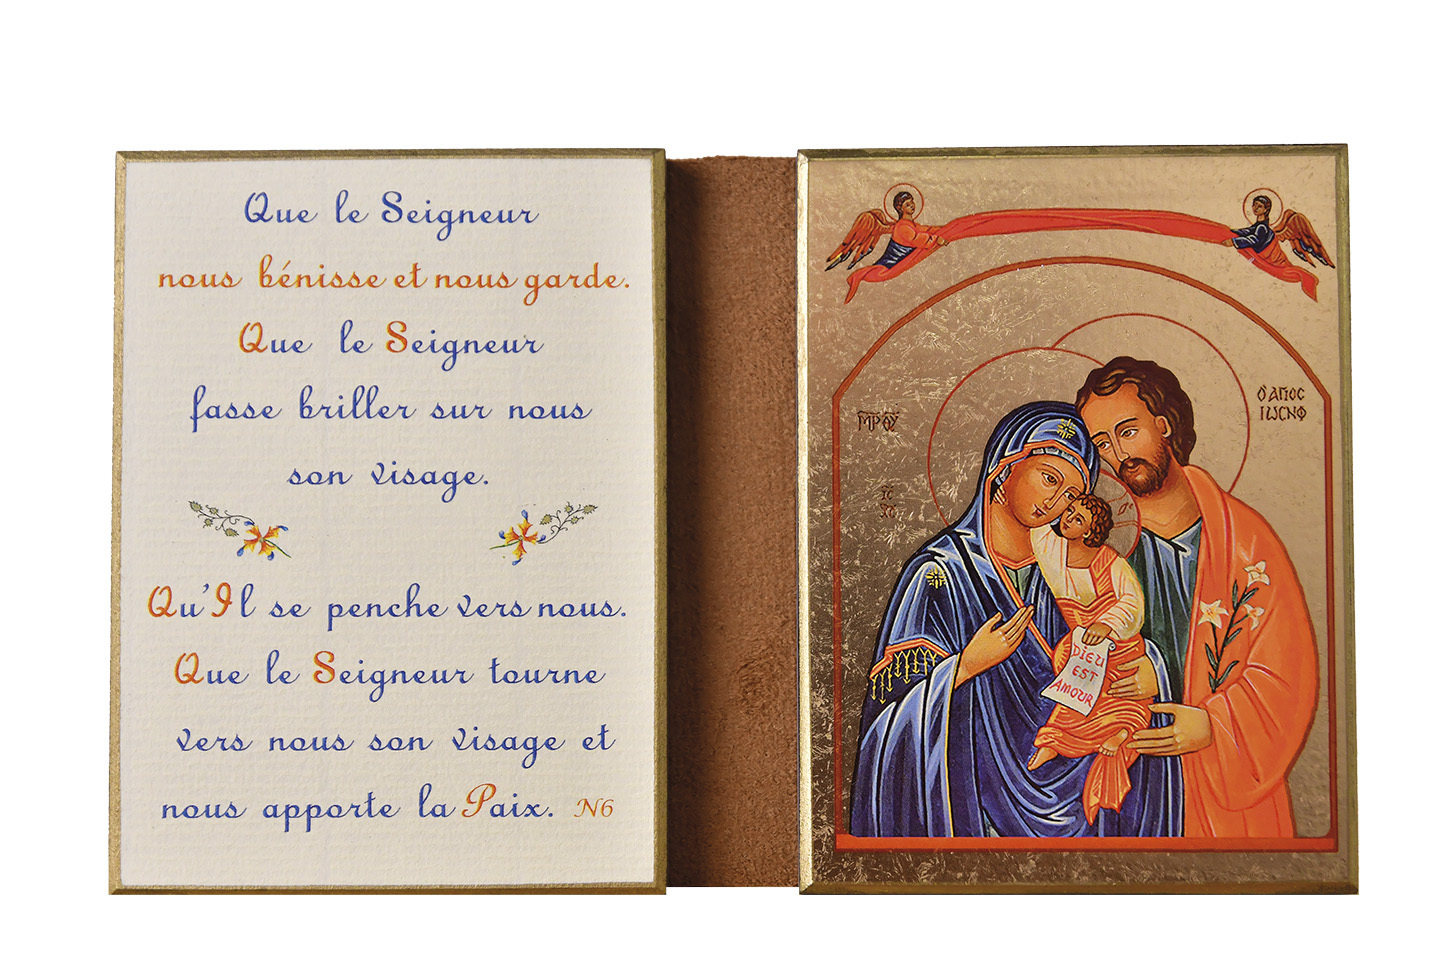 Que le Seigneur
nous bénisse et nous garde.
Que le Seigneur
fasse briller sur nous
son visage.
Qu'Il se penche vers nous.
Que le Seigneur tourne
vers nous son visage et
nous apporte la Paix. N6
ΜΡ ΘΥ
Ὁ ΑΓΙΟΣ
ΙΩΣΗΦ
ΙC
ΧC
DIEU
EST
AMOUR